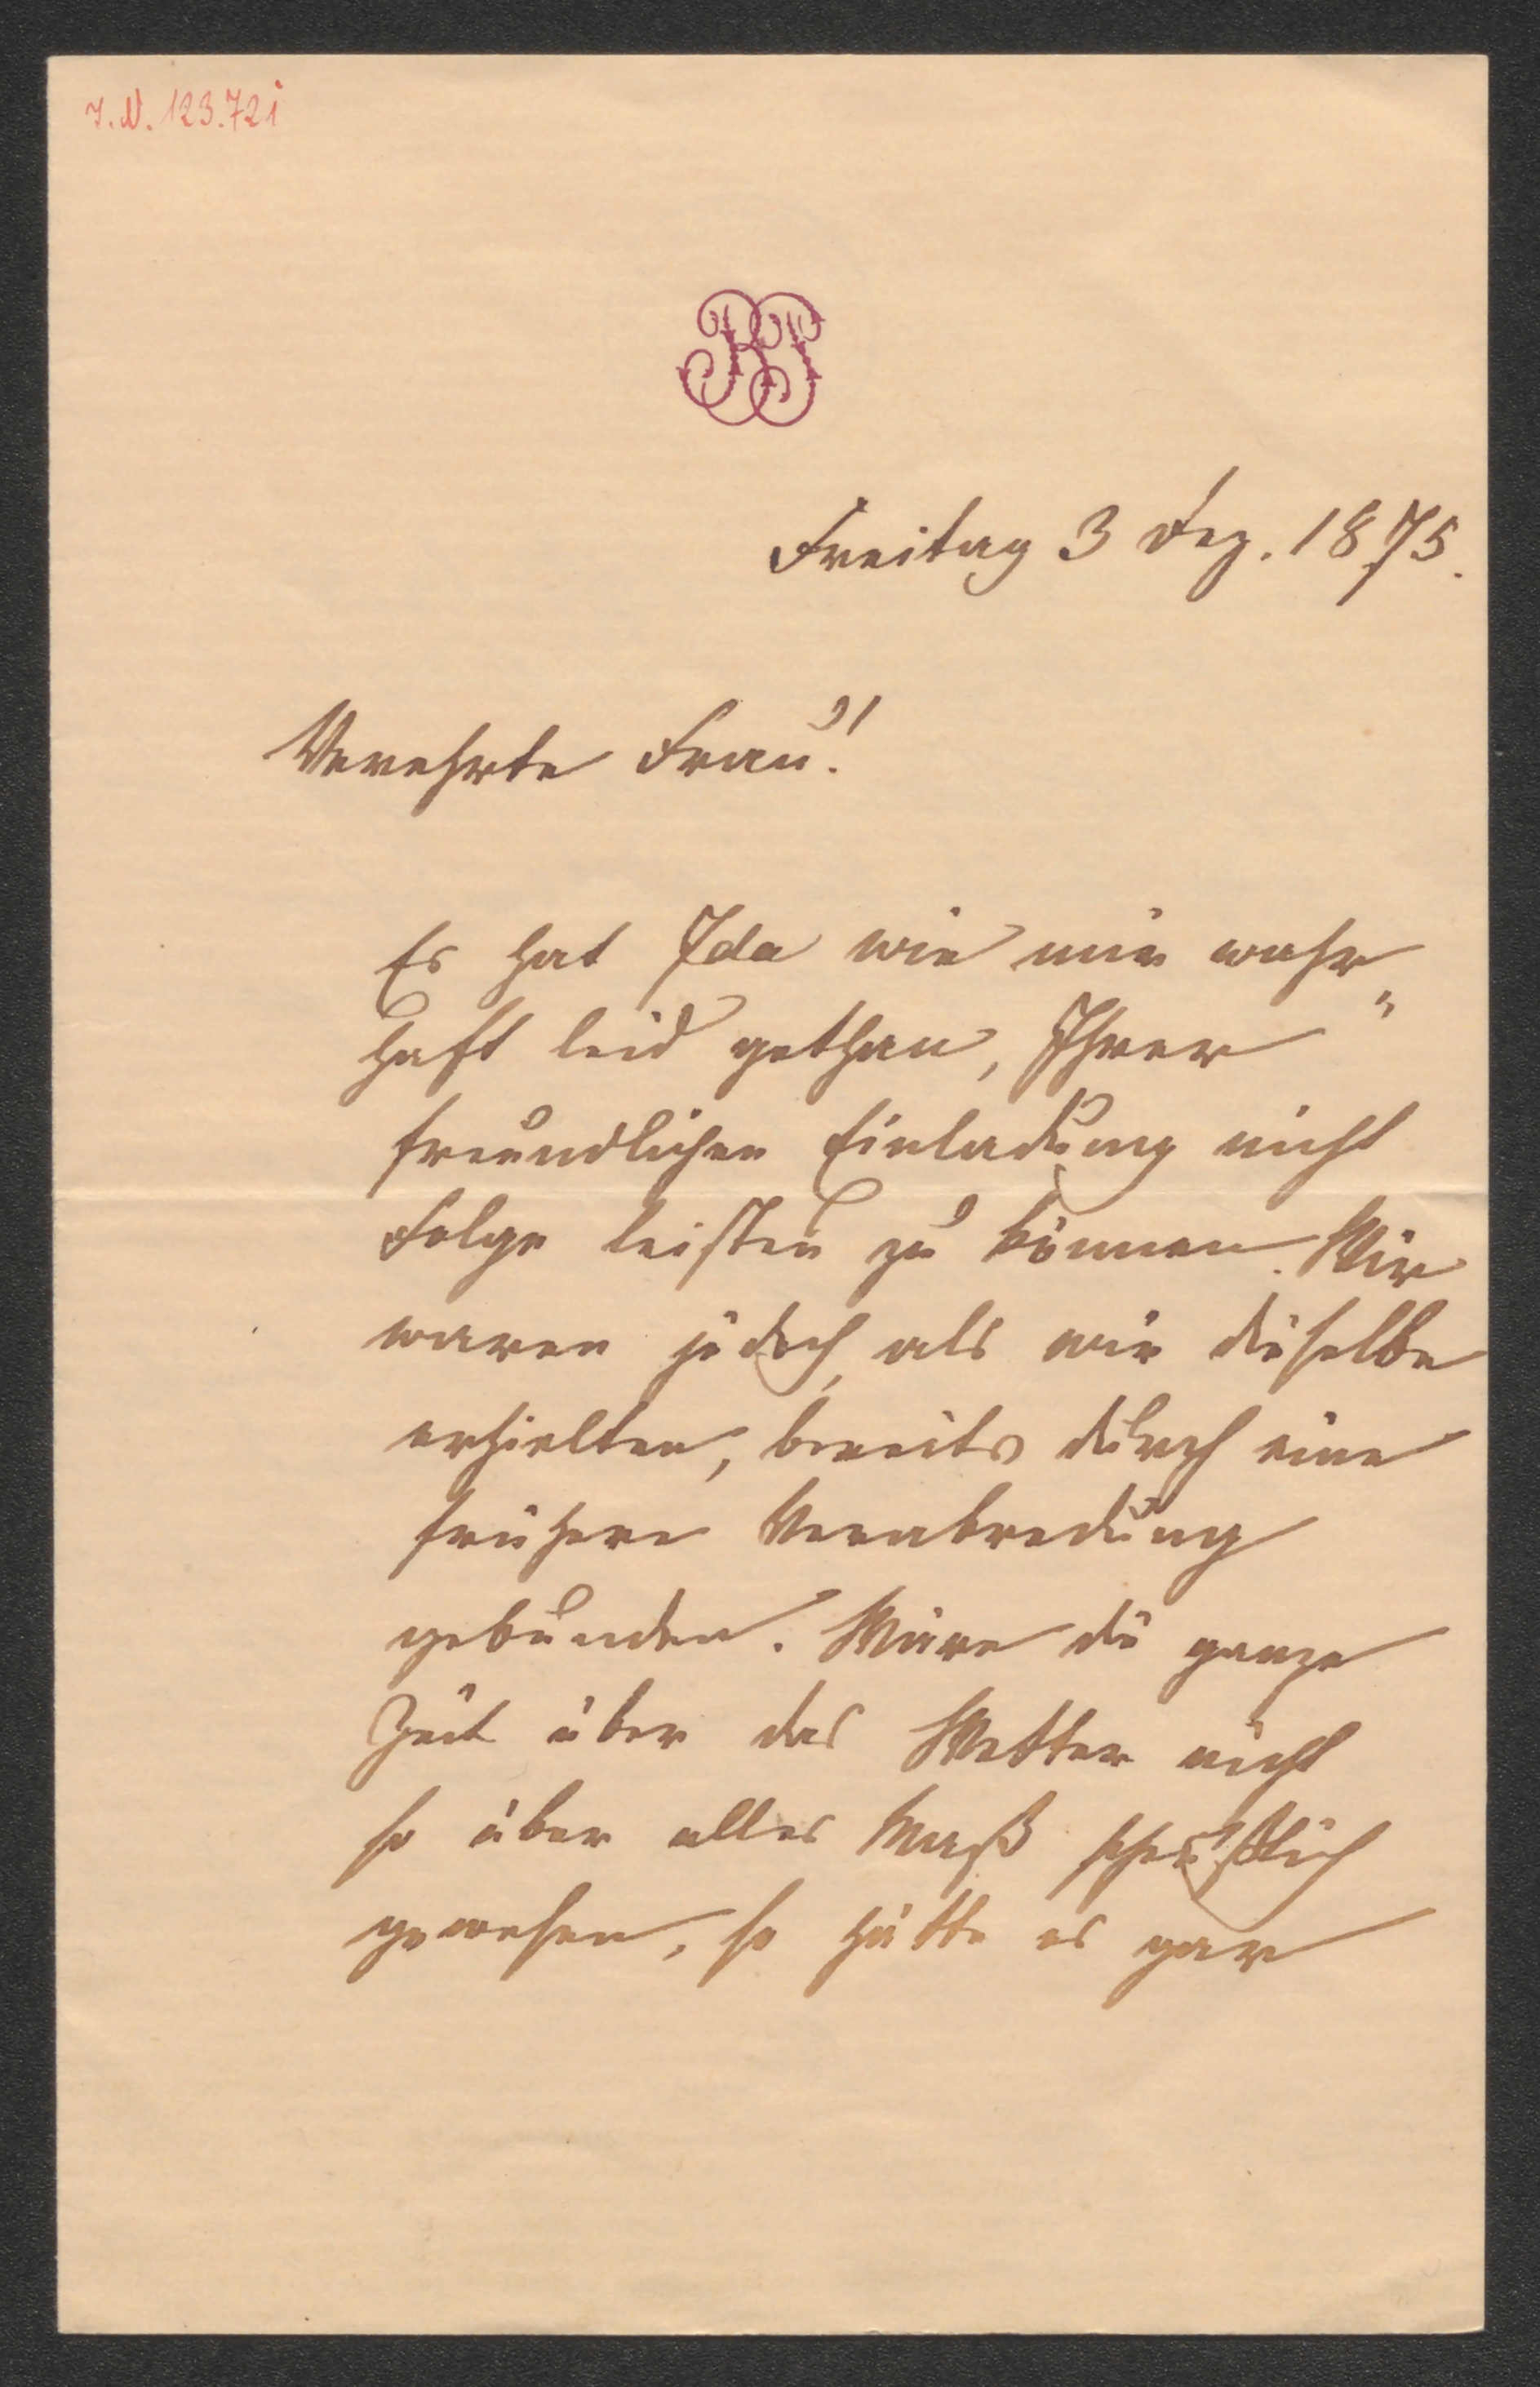 I.N. 123.721
Freitag 3 Dez. 1875.
Verehrte Frau!
Es hat Ida wie mir wahr„
haft leid gethan, Ihrer
freundlichen Einladung nicht
Folge leisten zu können. Wir
waren jedoch, als wir dieselbe
erhielten, bereits durch eine
frühere Verabredung
gebunden. Wäre die ganze
Zeit über das Wetter nicht
so über alles Maß scheußlich
gewesen, so hätte es gar